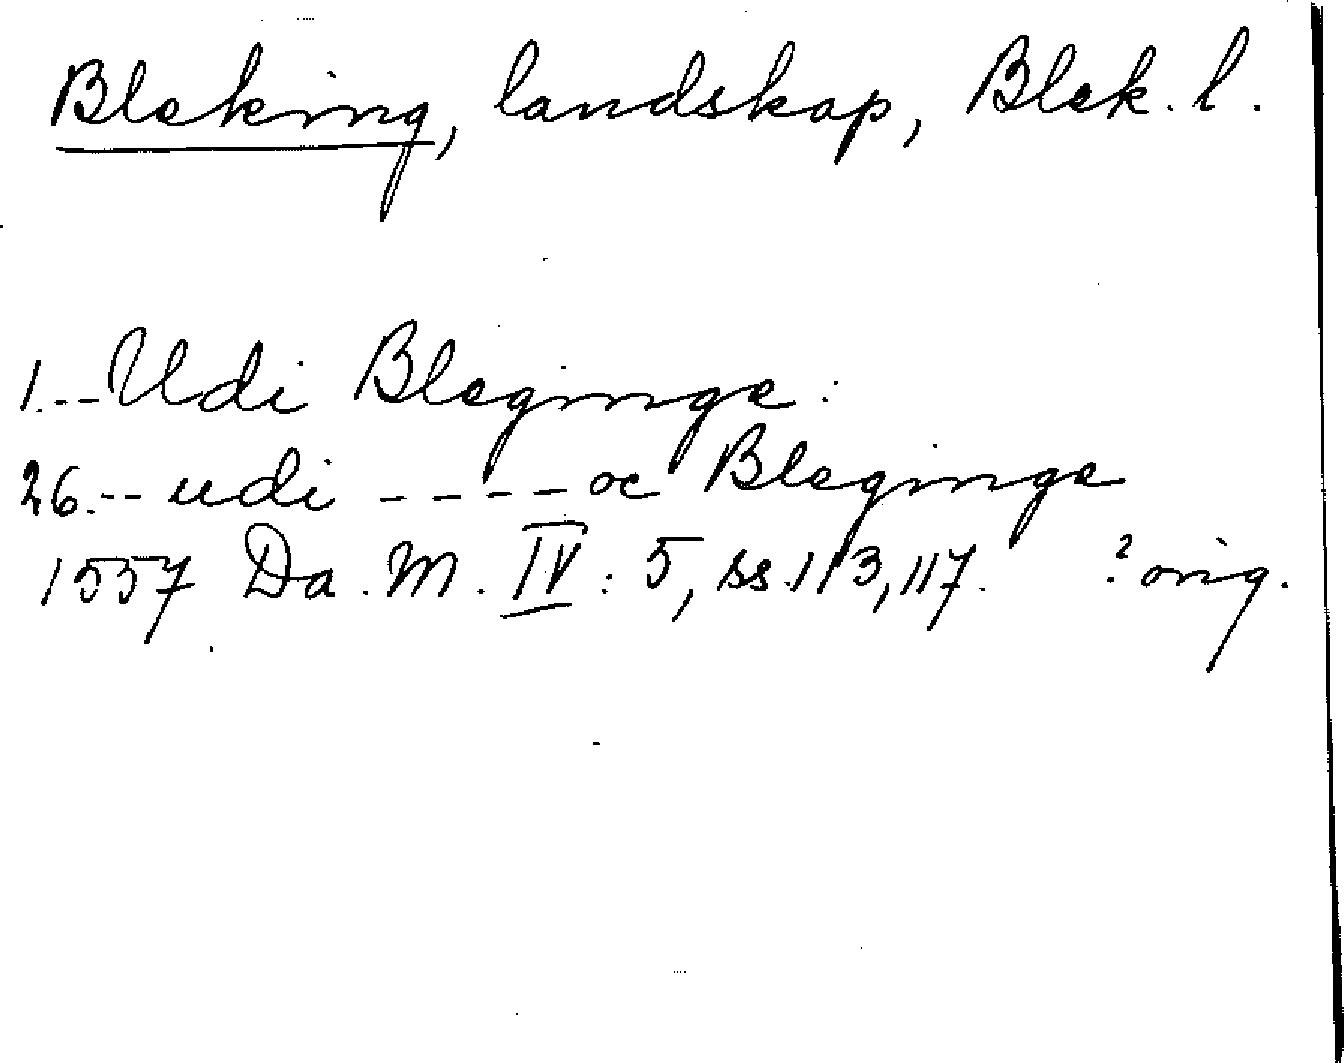 Bleking, landskap, Blek. l.
1.--Udi Bleginge:
26.-- udi ---- oc Bleginge
1557 Da. M. IV: 5, ss. 113, 117. ? orig.